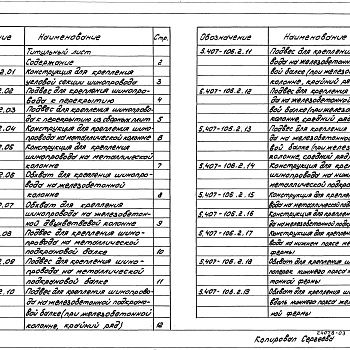 ние Наименование Стр.
Титульный лист
Содержание 2
2.01 Конструкция для крепления
угловой секции шинопровода 3
2.02 Подвес для крепления шинопро-
вода к перекрытию 4
2.03 Подвес для крепления шинопрово-
да к перекрытию из сборных плит 5
2.04 Конструкция для крепления шино-
провода на металлической колонне 6
2.05 Конструкция для крепления
шинопровода на металлической
колонне 7
2.06 Обхват для крепления шинопро-
вода на железобетонной
колонне 8
2.07 Обхват для крепления
шинопровода на железобетон-
ной двухветвевой колонне 9
2.08 Подвес для крепления шино-
провода на металлической
подкрановой балке 10
2.09 Подвес для крепления шино-
провода на металлической
подкрановой балке 11
2.10 Подвес для крепления шинопрово-
да на железобетонной подкрано-
вой балке (при железобетонной
колонне, крайний ряд) 12
Обозначение Наименование
5.407-106.2.11 Подвес для креплени
вода на железобетон
вой балке (при железо
колонне, крайний ря
5.407-106.2.12 Подвес для крепления
да на железобетонной
вой балке (при железо
колонне, средний ряд)
5.407-106.2.13 Подвес для крепления
да на железобетонно
вой балке (при желез
колонне, средний ряд)
5.407-106.2.14 Подвес для крепления
шинопровода на ниж
металлической подкра
5.407-106.2.15 Конструкция для креплен
вода на металлической
5.407-106.2.16 Конструкция для креплен
на железобетонной подкр
5.407-106.2.17 Конструкция для креплени
да на нижнем поясе же
фермы
5.407-106.2.18 Обхват для крепления ши
поперек нижнего пояса ж
тонной фермы
5.407-106.2.19 Обхват для крепления ш
вдоль нижнего пояса жел
ной фермы
Копировал Сергеева 24078-03